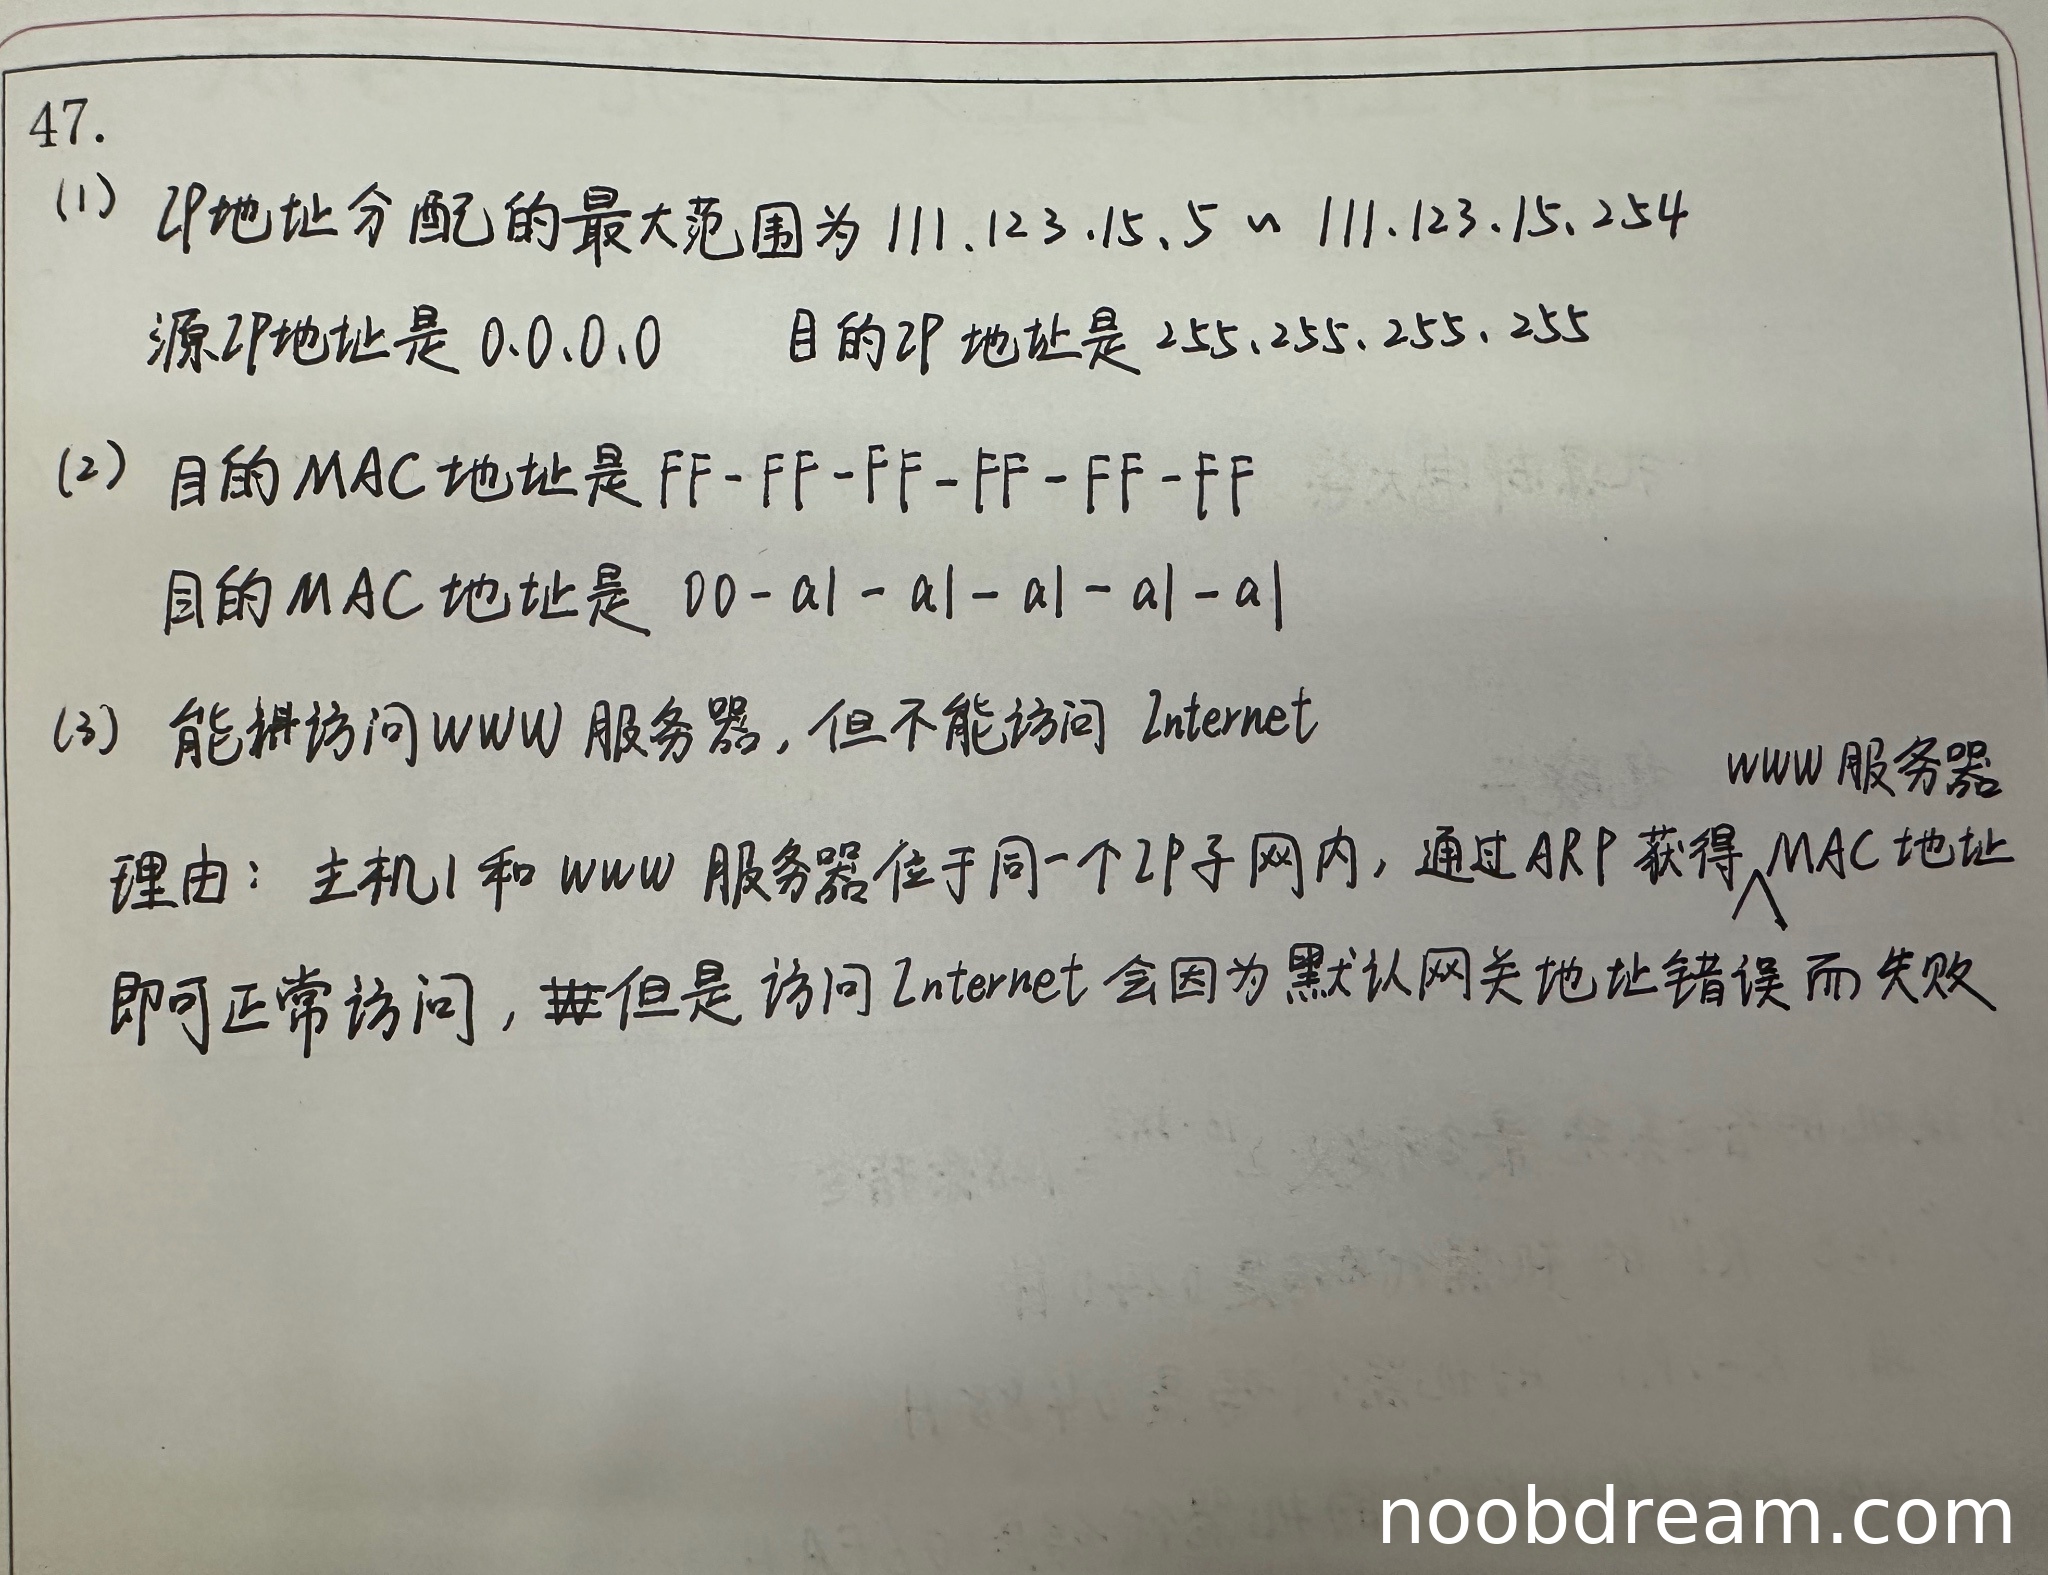 47.
(1) IP地址分配的最大范围为 111.123.15.5 ~ 111.123.15.254
源IP地址是 0.0.0.0 目的IP地址是 255.255.255.255
(2) 目的MAC地址是 FF-FF-FF-FF-FF-FF
目的MAC地址是 00-a1-a1-a1-a1-a1
(3) 能访问WWW服务器,但不能访问 Internet
WWW服务器
理由: 主机1和WWW服务器位于同一个IP子网内,通过ARP获得MAC地址
即可正常访问,但是访问Internet会因为默认网关地址错误而失败
noobdream.com